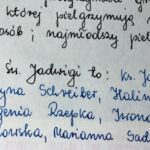 której pielgrzymują
osób i najmłodszy piel
Św. Jadwigi to: ks. Ja
yna Schreiber, Halin
genia Rzepka, Iwona
owska, Marianna Sad